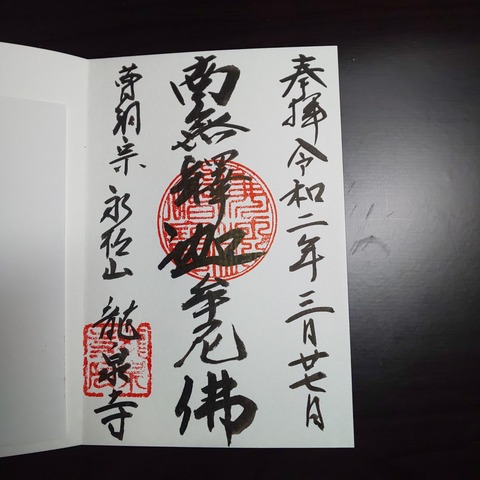 奉拝 令和二年三月廿七日
南無釋迦牟尼佛
曹洞宗 永松山 龍泉寺